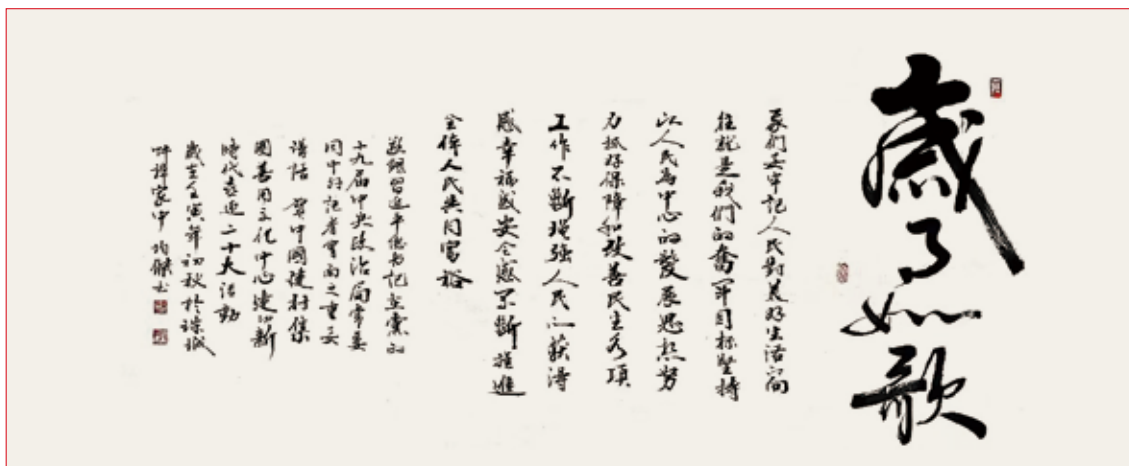 歲月如歌
我們要牢記人民對美好生活的嚮
往就是我們的奮鬥目标堅持
以人民為中心的發展思想努
力抓好保障和改善民生各項
工作不斷增强人民的获得
感幸福感安全感不斷推進
全体人民共同富裕
敬録習近平总书记在黨的
十九届中央政治局常委
同中外记者會面之重要
講話 賀中國建材集
團善用文化中心建功新
時代喜迎二十大活動
歲在壬寅年初秋於
家中